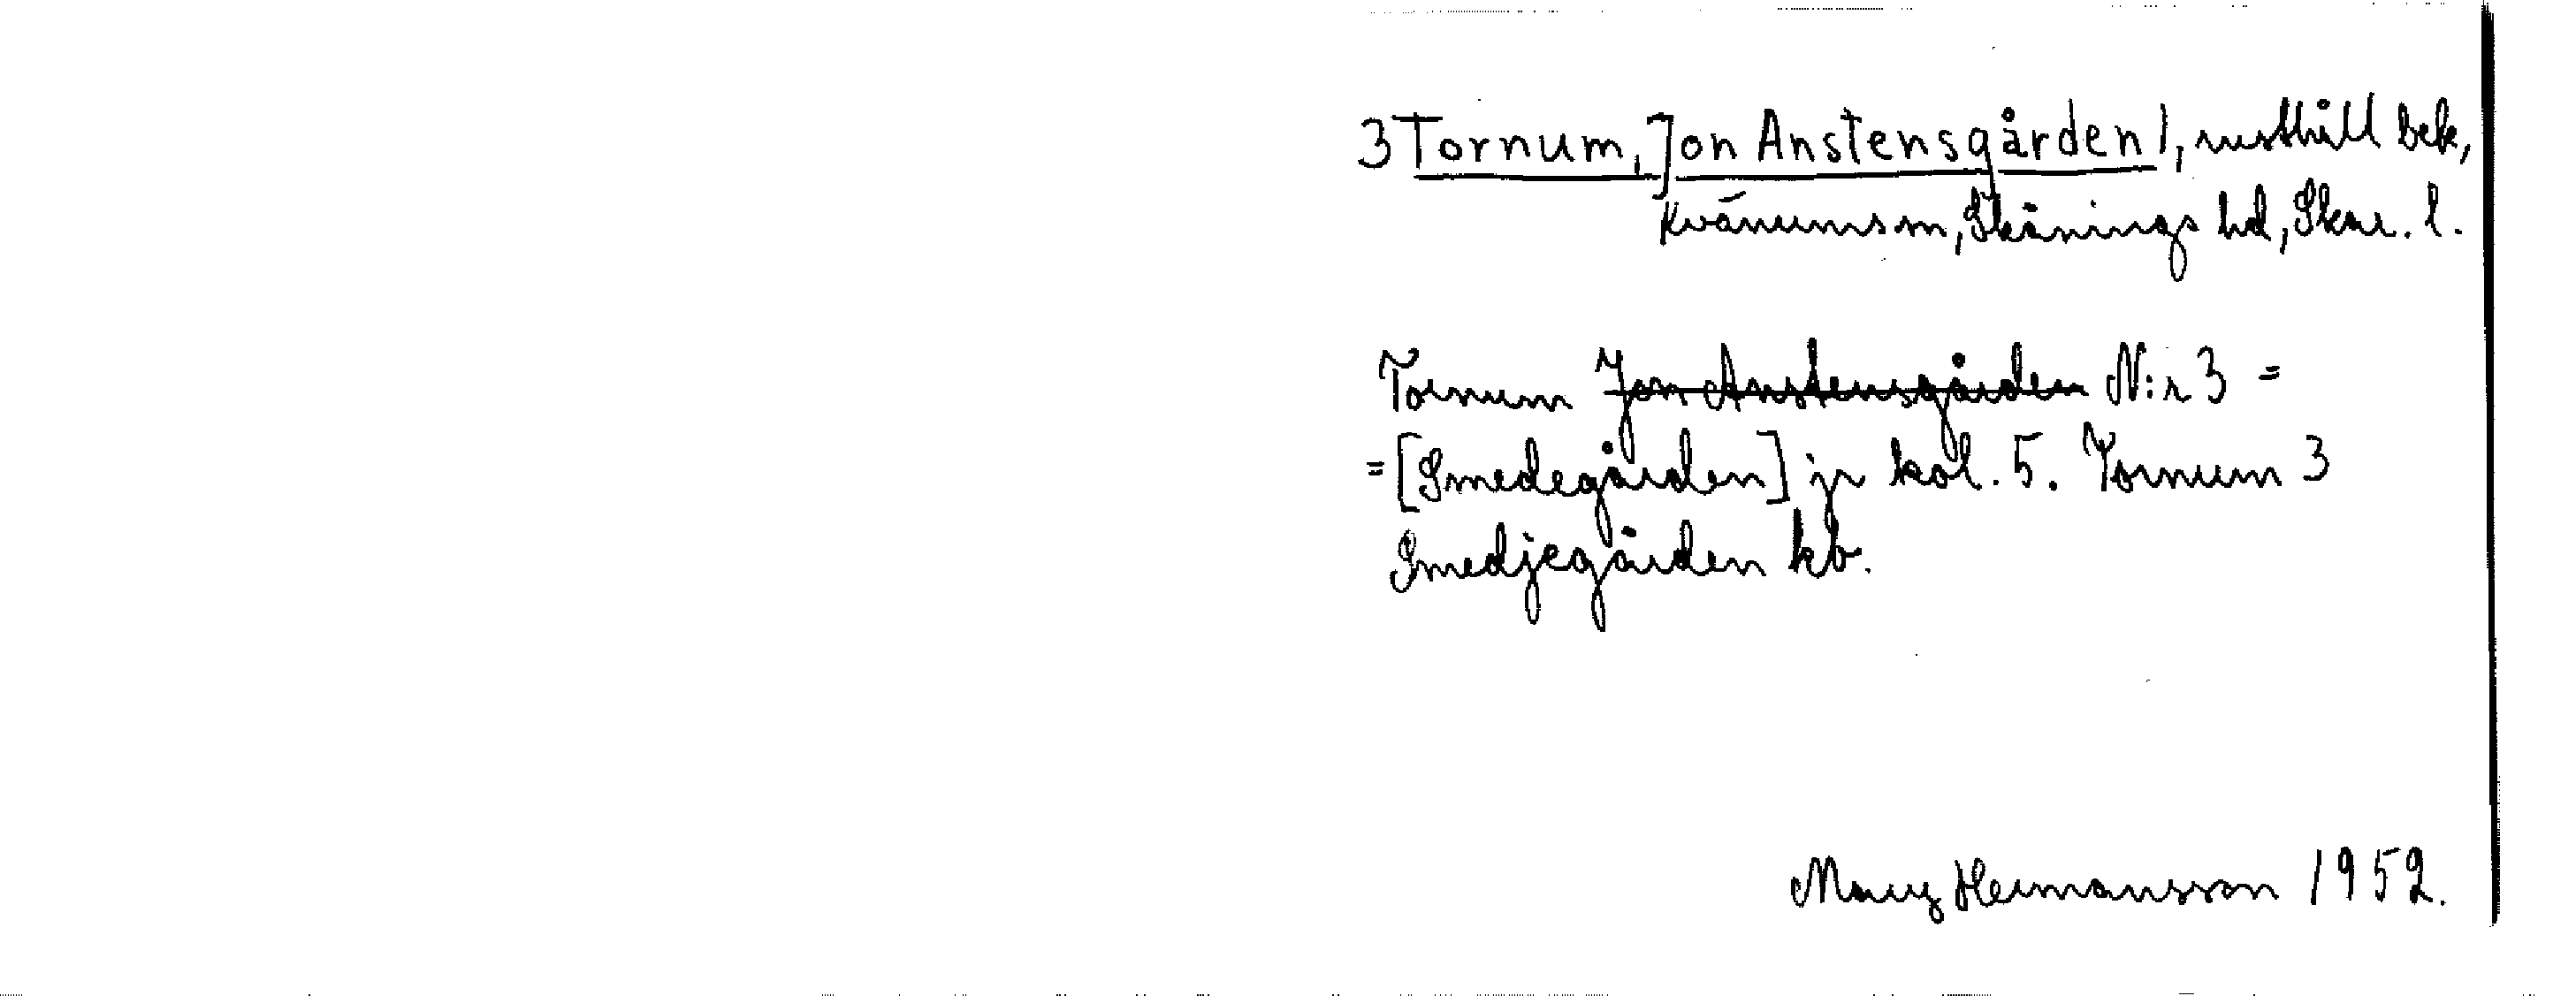 3 Tornum, Jon Anstensgården 1, rusthåll bek,
Kvänums sn, Skånings hd, Skar. l.
Tornum Jon Anstensgården N:r 3 =
= [Smedegården] jr kol. 5. Tornum 3
Smedjegården kb.
Mary Hermansson 1952.